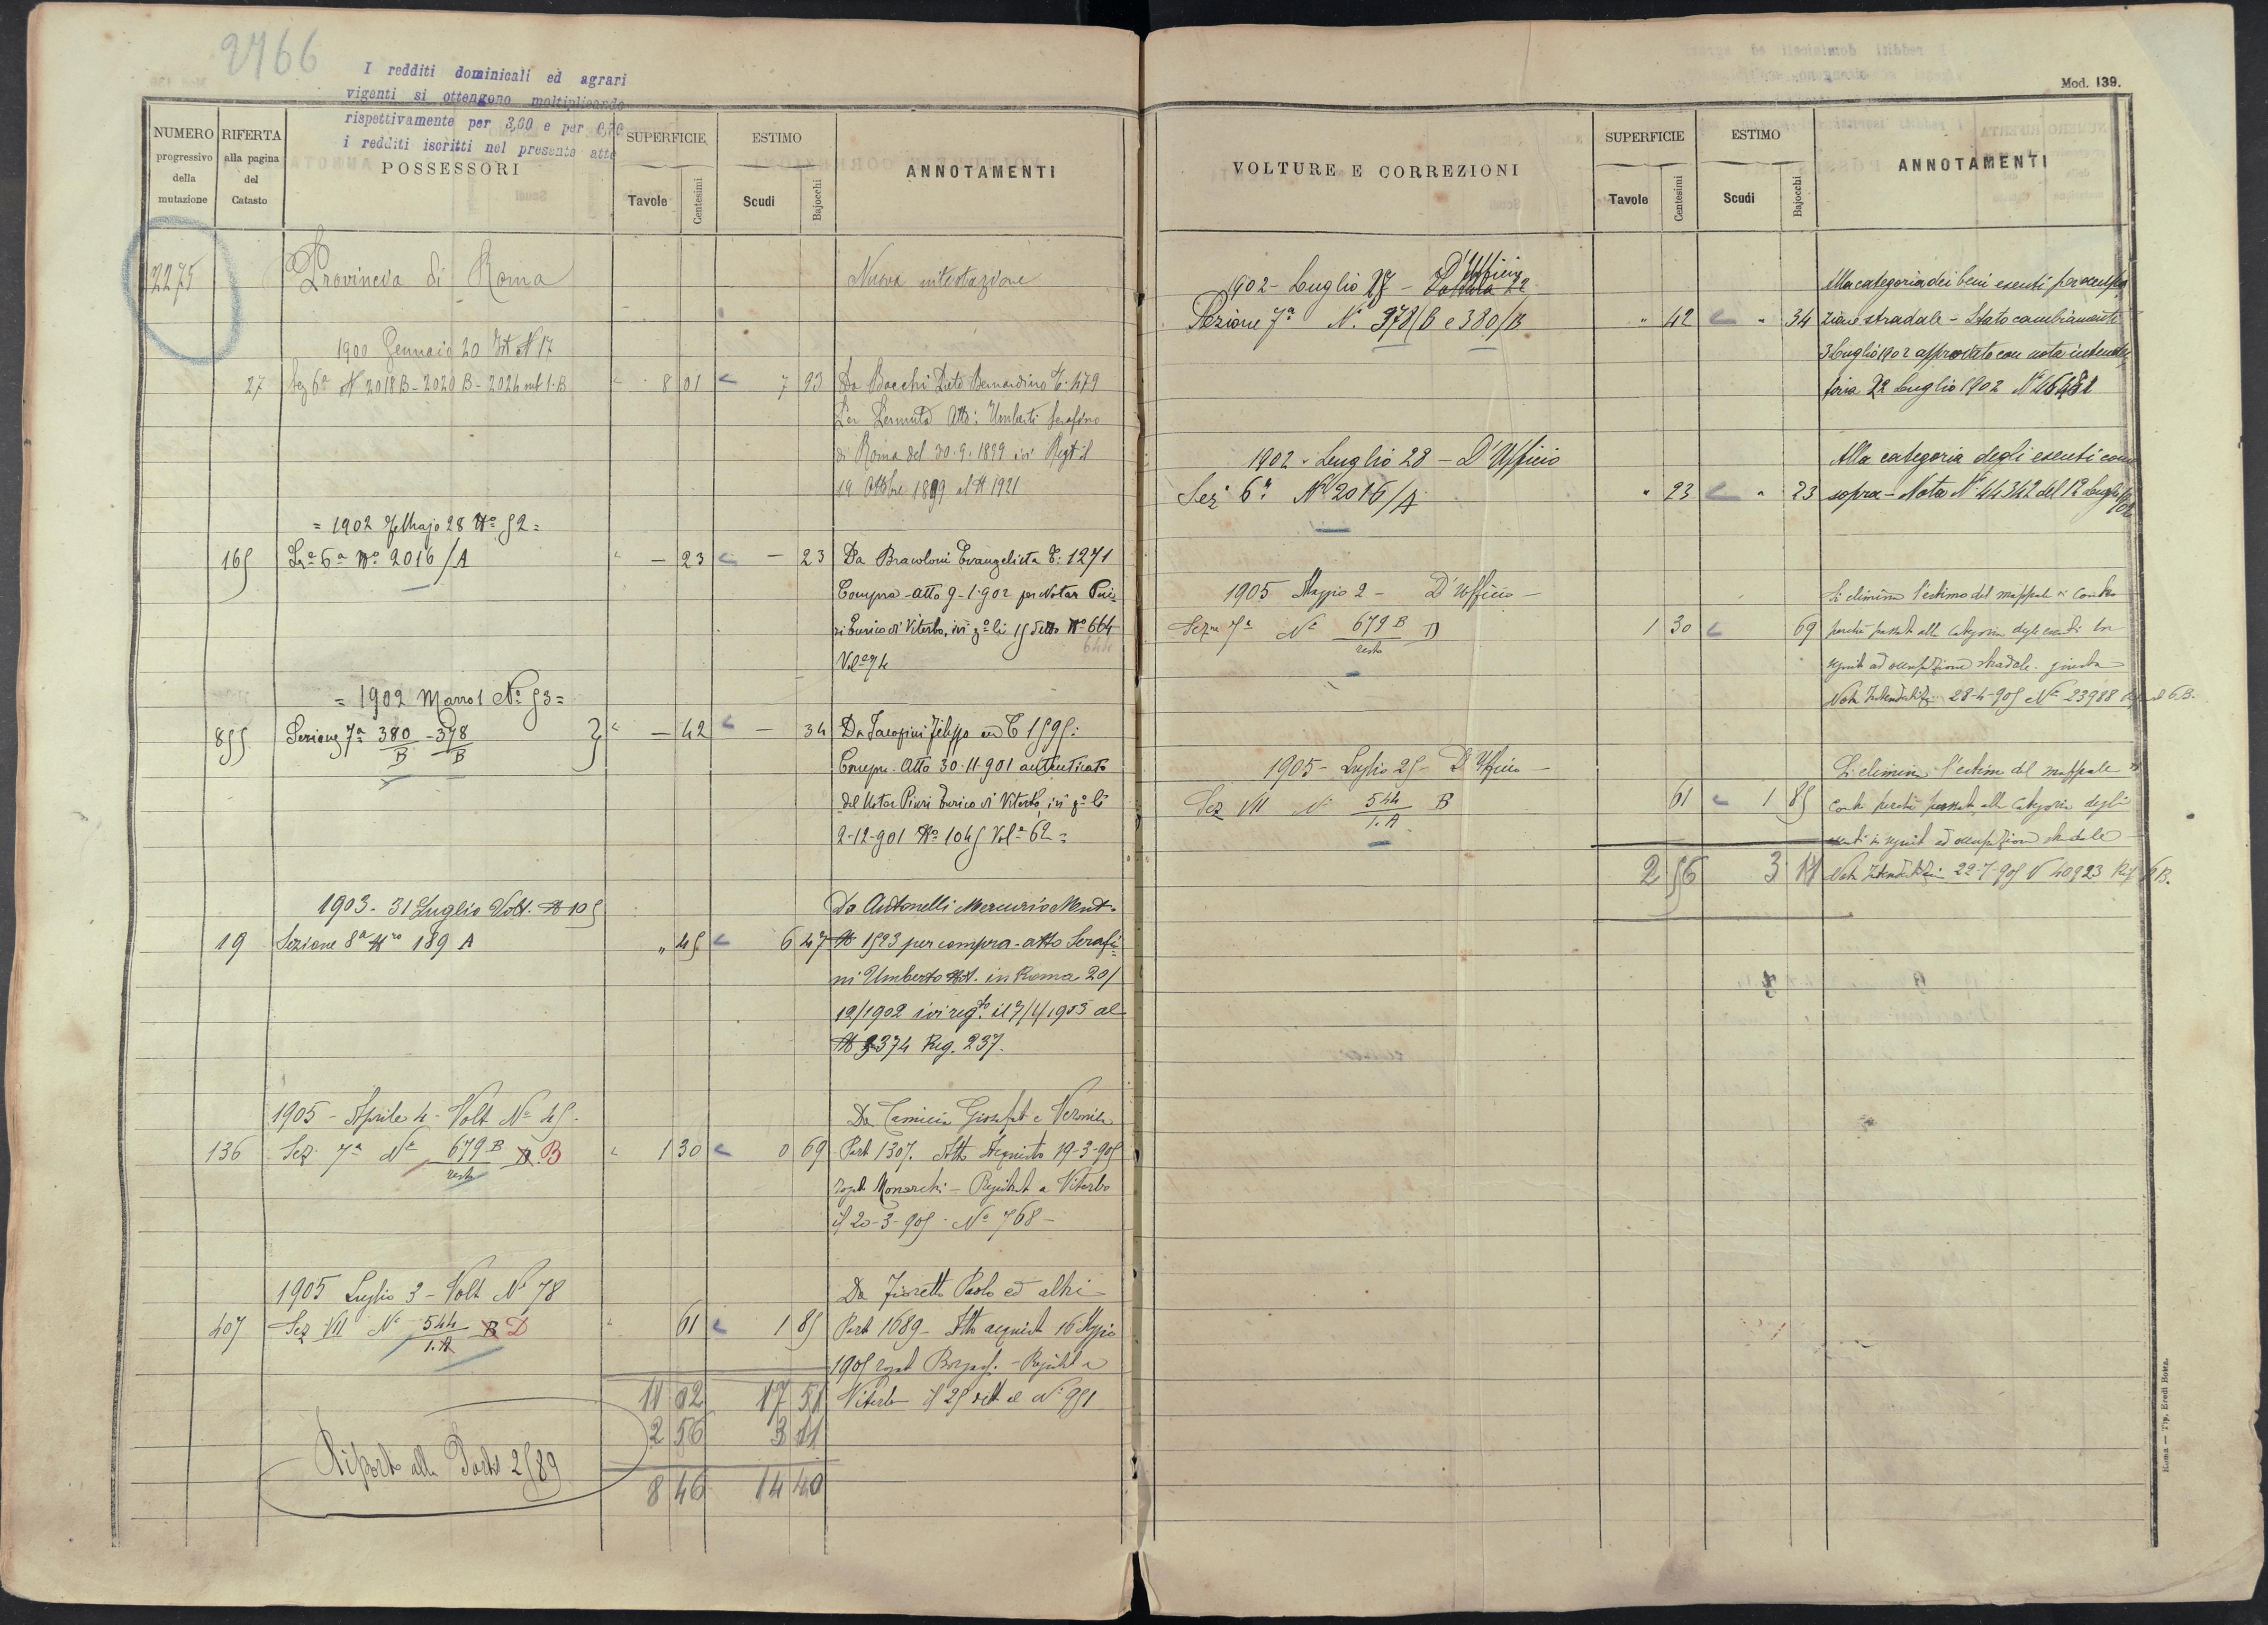 2766
I redditi dominicali ed agrari
vigenti si ottengono moltiplicando
rispettivamente per 3,60 e per
i redditi iscritti nel presente atto
NUMERO progressivo della mutazione
RIFERTA alla pagina del Catasto
POSSESSORI
SUPERFICIE
Tavole
Centesimi
ESTIMO
Scudi
Bajocchi
ANNOTAMENTI
2275 Provincia di Roma Nuova intestazione
1900 Gennaio 20 N 17
27 Sez 6a N 2018 B - 2020 B - 2024 sub 1. B 8 01 7 93 Da Bacchi Bernardino C. 479
Per Permuta Atto: Umberti Serafino
di Roma del 30.9.1899 ivi Regt il
19 Ottobre 1899 al N 1921
= 1902 Febbrajo 28 No 52 =
165 Se 6a No 2016/A — 23 — 23 Da Bracoloni Evangelista C. 1271
Compra - atto 9-1-902 per Notar Pie
ri Enrico di Viterbo, ivi 15 detto No 664
644
Vol 74
= 1902 Marzo 1 No 53 =
855 Sezione 7a 380/B - 378/B } — 42 — 34 Da Jacopini Filippo C 1595:
Compra. Atto 30-11-901 autenticato
del Notar Pieri Enrico di Viterbo, ivi
2-12-901 No 1045 Vol 62 =
1903 - 31 Luglio Volt. N 105 Da Antonelli Mercurio Ment.
19 Sezione 8a No 189 A „ 45 6 47 N 1593 per compra - atto Serafi-
ni Umberto Not. in Roma 20/
12/1902 ivi regto il 7/1/1903 al
N 3374 Reg. 237.
1905 - Aprile 4 - Volt No 45 - Da Camicia Giosafat e Veronica
136 Sez. 7a No 679 B/resto D. B 1 30 0 69 Part 1307. Atto Acquisto 19-3-905
rogato Monarchi - Registrat a Viterbo
il 20-3-905 - No 768 -
1905 Luglio 3 - Volt No 78 Da Fioretti Paolo ed altri
407 Sez VII No 544/1.A B D 61 1 85 Part 1689 - Atto acquist 16 Maggio
1905 - Registrat a
11 02 17 51 Viterbo il 25 dett al No 951
2 56 3 11
8 46 14 40
Riporto alla Partita 2589
Mod. 139.
VOLTURE E CORREZIONI
SUPERFICIE
Tavole
Centesimi
ESTIMO
Scudi
Bajocchi
ANNOTAMENTI
D'Ufficio
1902 - Luglio 28 - Alla categoria dei beni esenti per occupa
Sezione 7a No. 378/B e 380/B " 42 " 34 zione stradale - Stato cambiamenti
3 Luglio 1902 approvato con nota intenda
toria 22 Luglio 1902 N
1902 - Luglio 28 - D'Ufficio Alla categoria degli esenti come
Sez 6a No 2016/A " 23 " 23 sopra - Nota N. 44342 del 12 Luglio
1905 Maggio 2 - D'Ufficio - Si elimina l'estimo del mappale contro
Sezne 7a No 679 B/resto D 1 30 69 perchè passato alla categoria degli esenti in
seguito ad occupazione stradale - giusta
Nota Intendentizia 28-4-905 No 23988
1905 - Luglio 25 - D'Ufficio - Si elimina l'estimo del mappale
Sez VII No 544/1.A B 61 1 85 contro perchè passato alla categoria degli
esenti in seguito ad occupazione stradale
2 56 3 11 Nota Intendentizia 22-7-905 N 40923
Roma — Tip. Eredi Botta.